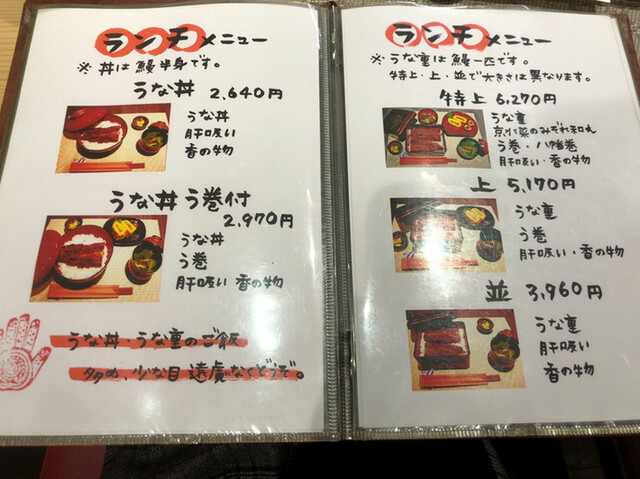 ランチメニュー
※ 丼は鰻半身です。
うな丼 2,640円
うな丼
肝吸い
香の物
うな丼 う巻付
2,970円
うな丼
う巻
肝吸い 香の物
うな丼・うな重のご飯
多め、少な目 遠慮なくどうぞ。
ランチメニュー
※ うな重は鰻一匹です。
特上・上・並で大きさは異なります。
特上 6,270円
うな重
京水菜のみぞれ和え
う巻・八幡巻
肝吸い・香の物
上 5,170円
うな重
う巻
肝吸い・香の物
並 3,960円
うな重
肝吸い
香の物